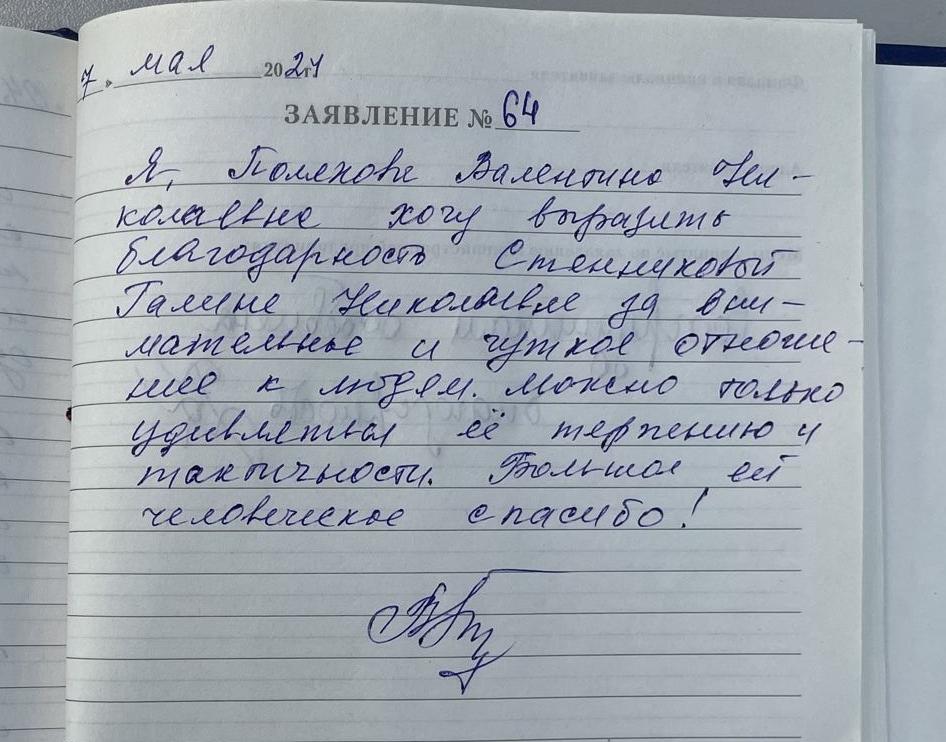 7 " мая 2024
ЗАЯВЛЕНИЕ № 64
Я, Полехова Валентина Ни-
колаевна хочу выразить
благодарность Стенниковой
Галине Николаевне за вни-
мательное и чуткое отноше-
ние к людям. Можно только
удивляться её терпению и
тактичности. Большое ей
человеческое спасибо!